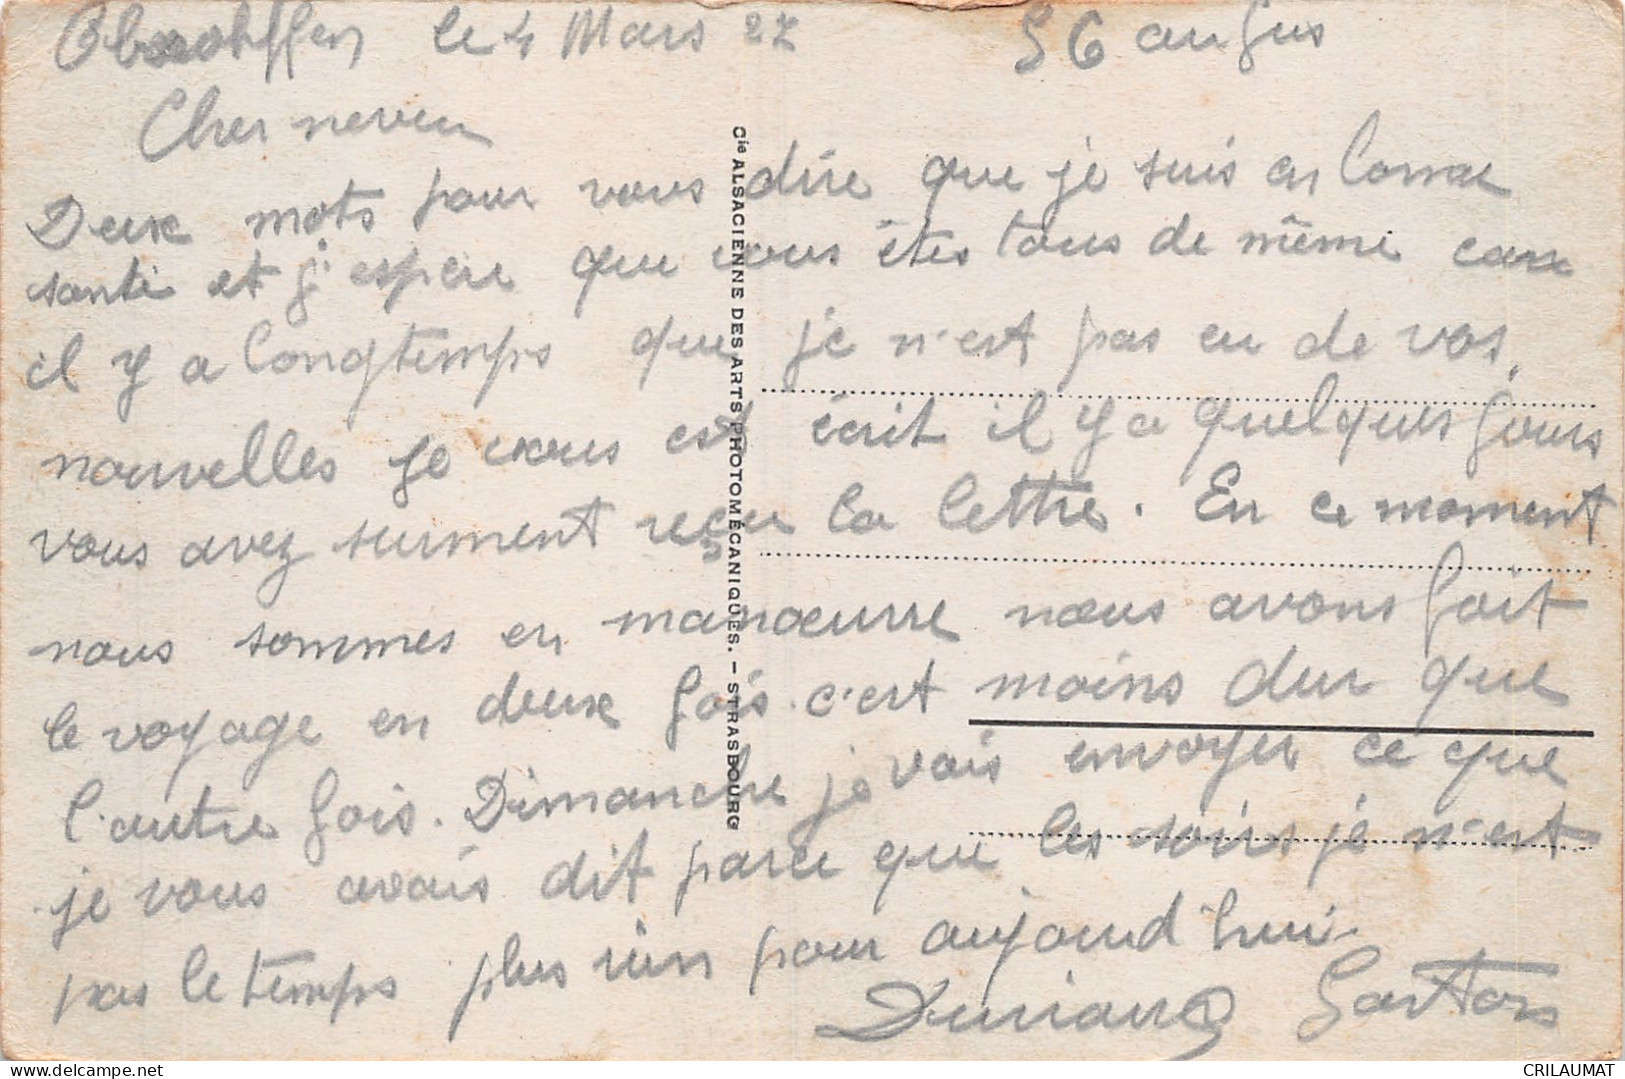 le 4 Mars 27
Cher neveu
Deux mots pour vous dire que je suis en bonne
santé et j'espère que vous êtes tous de même car
il y a longtemps que je n'est pas eu de vos
nouvelles je vous est écrit il y a quelques jours
vous avez surment reçu la lettre. En ce moment
nous sommes en manœuvre nous avons fait
le voyage en deux fois. c'est moins dur que
l'autre fois. Dimanche je vais envoyer ce que
je vous avais dit parce que les soirs je n'est
pas le temps plus rien pour aujourd'hui
Gaston
Cie ALSACIENNE DES ARTS PHOTOMÉCANIQUES. - STRASBOURG
CRILAUMAT